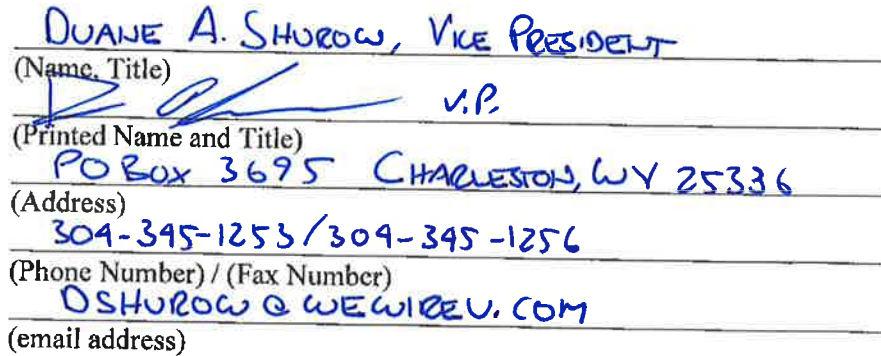 DUANE A. SHUROW, VICE PRESIDENT
(Name, Title)
V.P.
(Printed Name and Title)
PO BOX 3695 CHARLESTON, WV 25336
(Address)
304-345-1253/304-345-1256
(Phone Number) / (Fax Number)
DSHUROW@WEWIREU.COM
(email address)